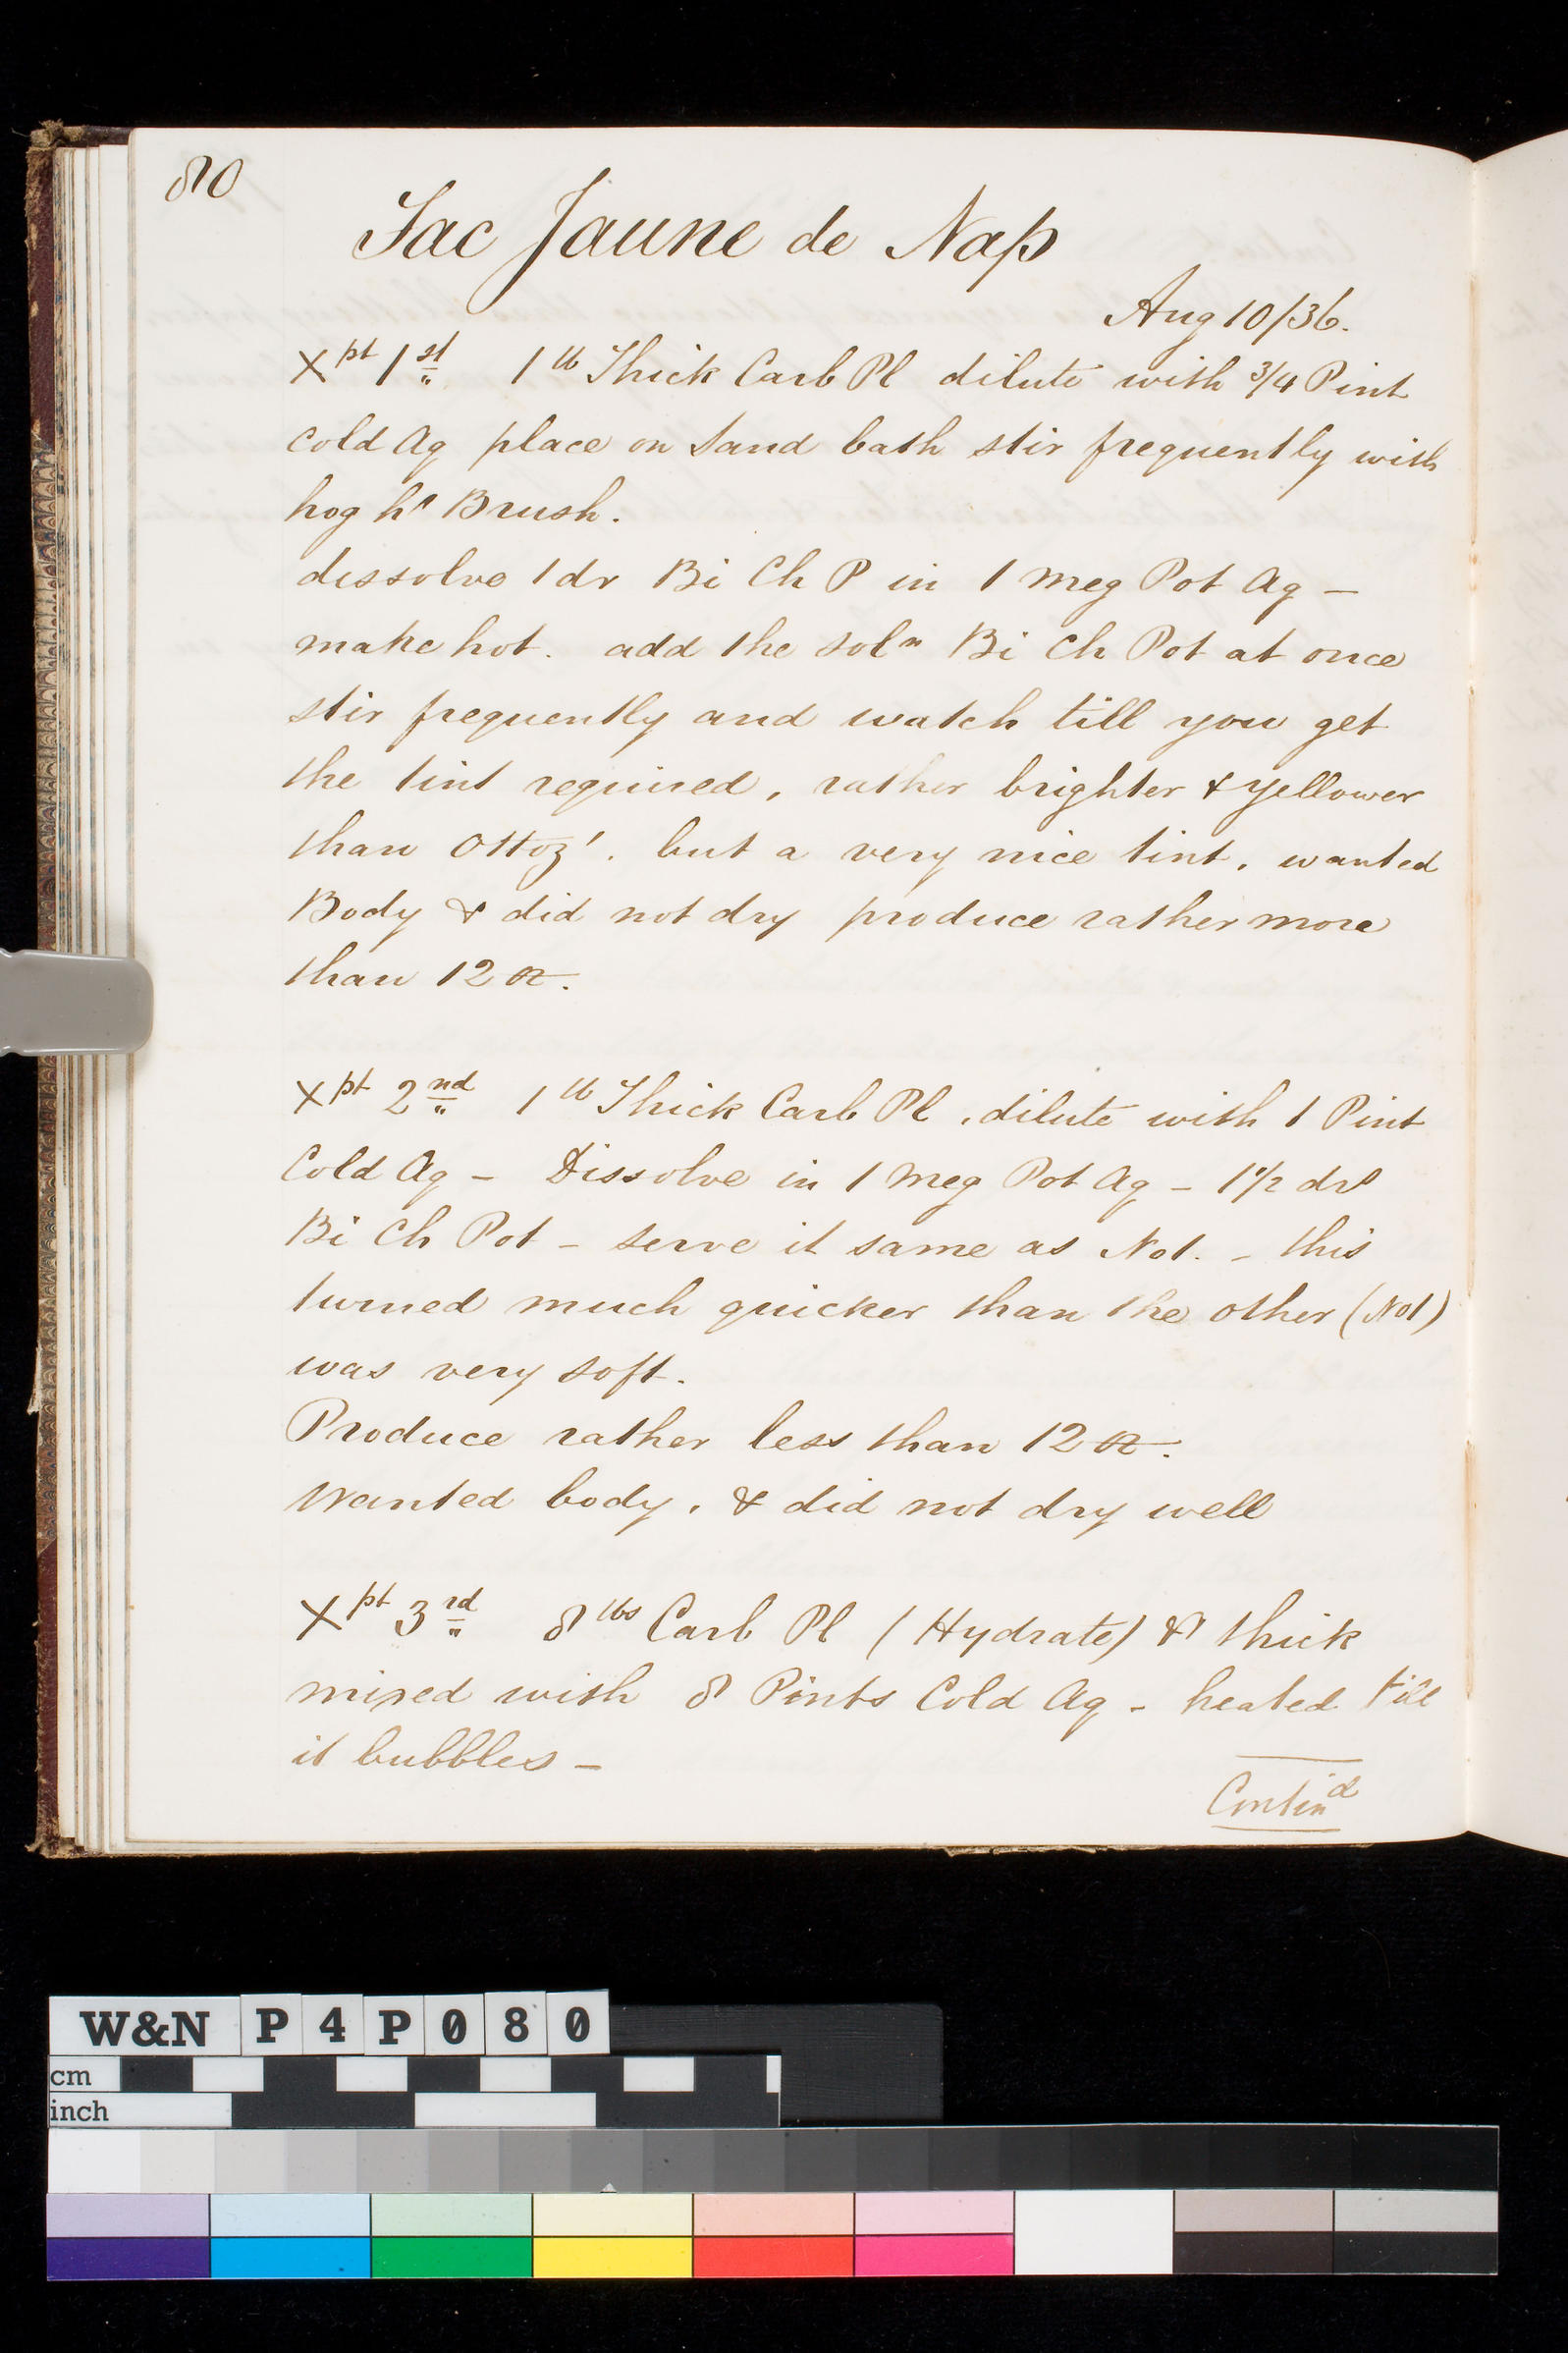 80
Fac Jaune de Nap
Aug 10/36.
Xpt 1st 1 lb Thick Carb Pl dilute with 3/4 Pint
cold Aq place on Sand bath stir frequently with
hog hs Brush.
dissolve 1 dr Bi Ch P in 1 Meg Pot Aq –
make hot. add the soln Bi Ch Pot at once
stir frequently and watch till you get
the tint required, rather brighter & yellower
than Ottoz'. but a very nice tint, wanted
Body & did not dry produce rather more
than 12 oz.
Xpt 2nd 1 lb Thick Carb Pl, dilute with 1 Pint
Cold Aq – Dissolve in 1 Meg Pot Aq – 1 1/2 drs
Bi Ch Pot – serve it same as No1. – this
turned much quicker than the other (No1)
was very soft.
Produce rather less than 12 oz.
Wanted body, & did not dry well
Xpt 3rd 8 lbs Carb Pl (Hydrate) & thick
mixed with 8 Pints Cold Aq – heated till
it bubbles –
Contind
W&N P4P080
cm
inch